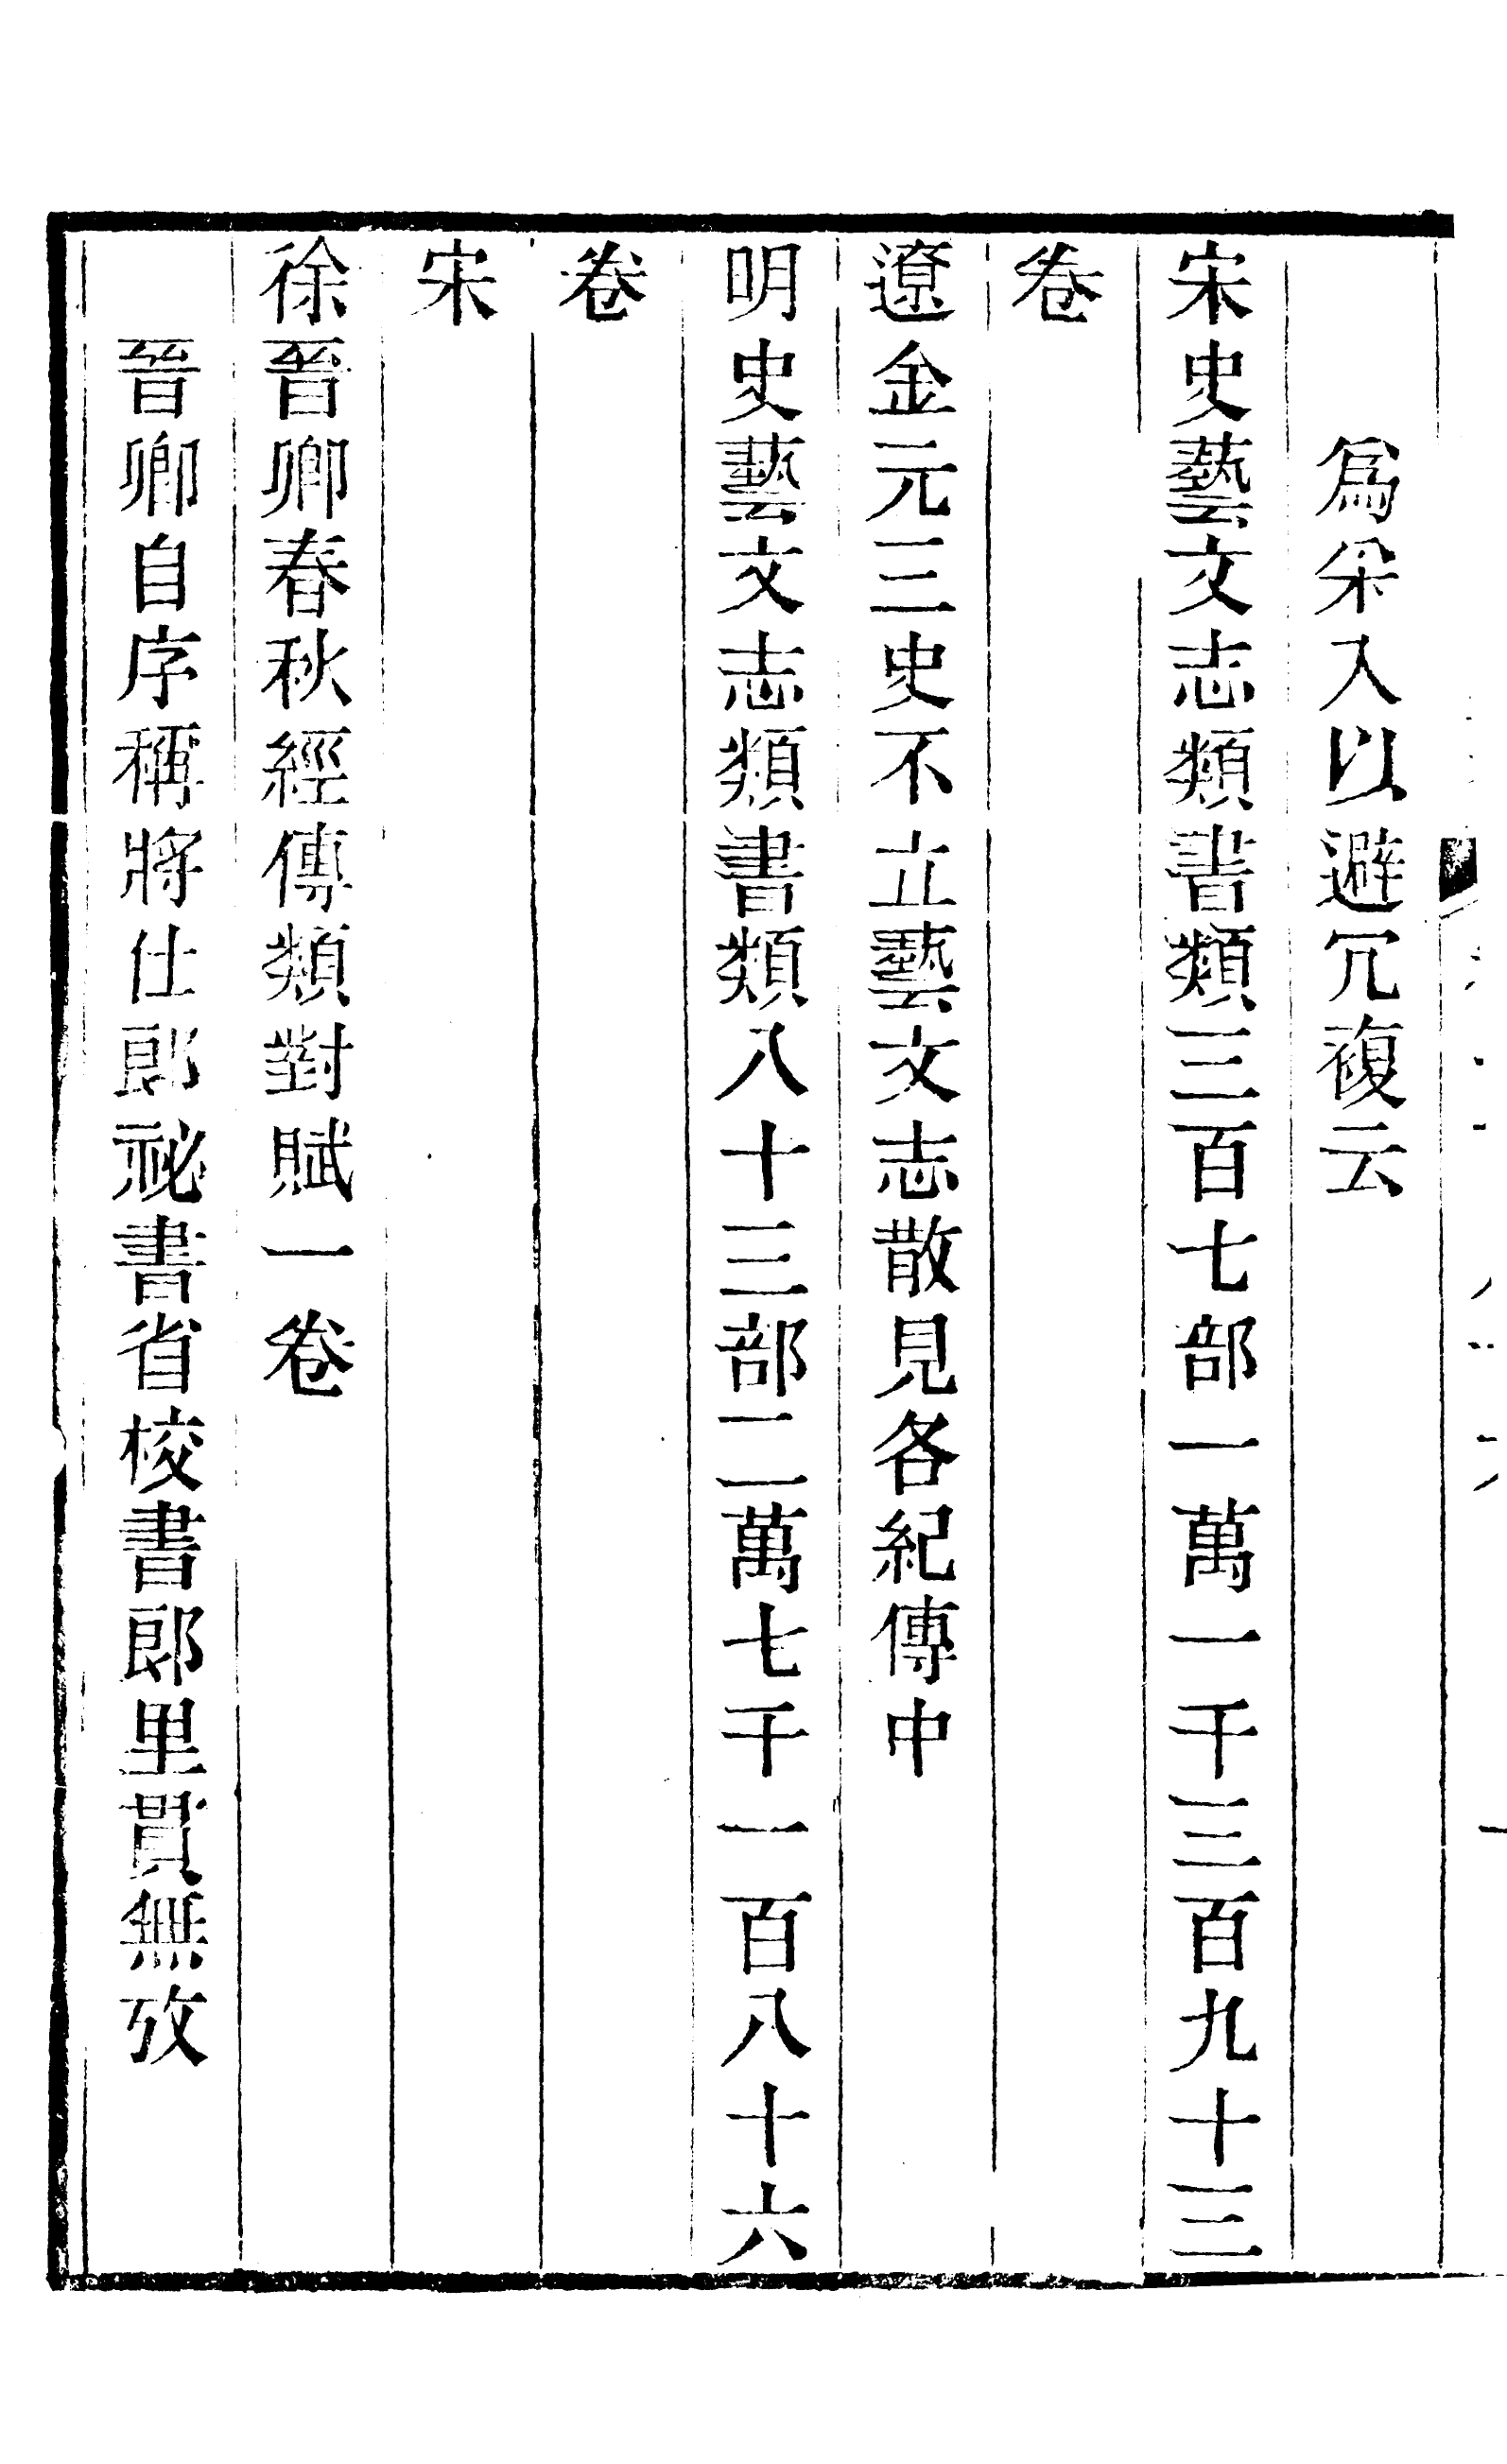 爲采入以避冗複云
宋史藝文志類書類三百七部一萬一千三百九十三
卷
遼金元三史不立藝文志散見各紀傳中
明史藝文志類書類八十三部二萬七千一百八十六
卷
宋
徐晉卿春秋經傳類對賦一卷
晉卿自序稱將仕郎祕書省校書郎里貫無攷